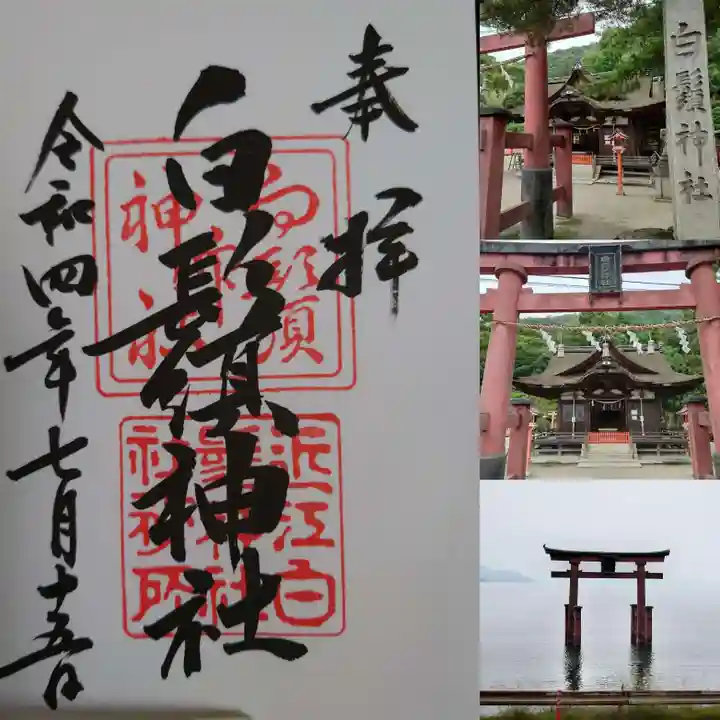 奉拝
白鬚神社
令和四年七月十五日
白鬚神社
近江白鬚神社社務所
白鬚神社